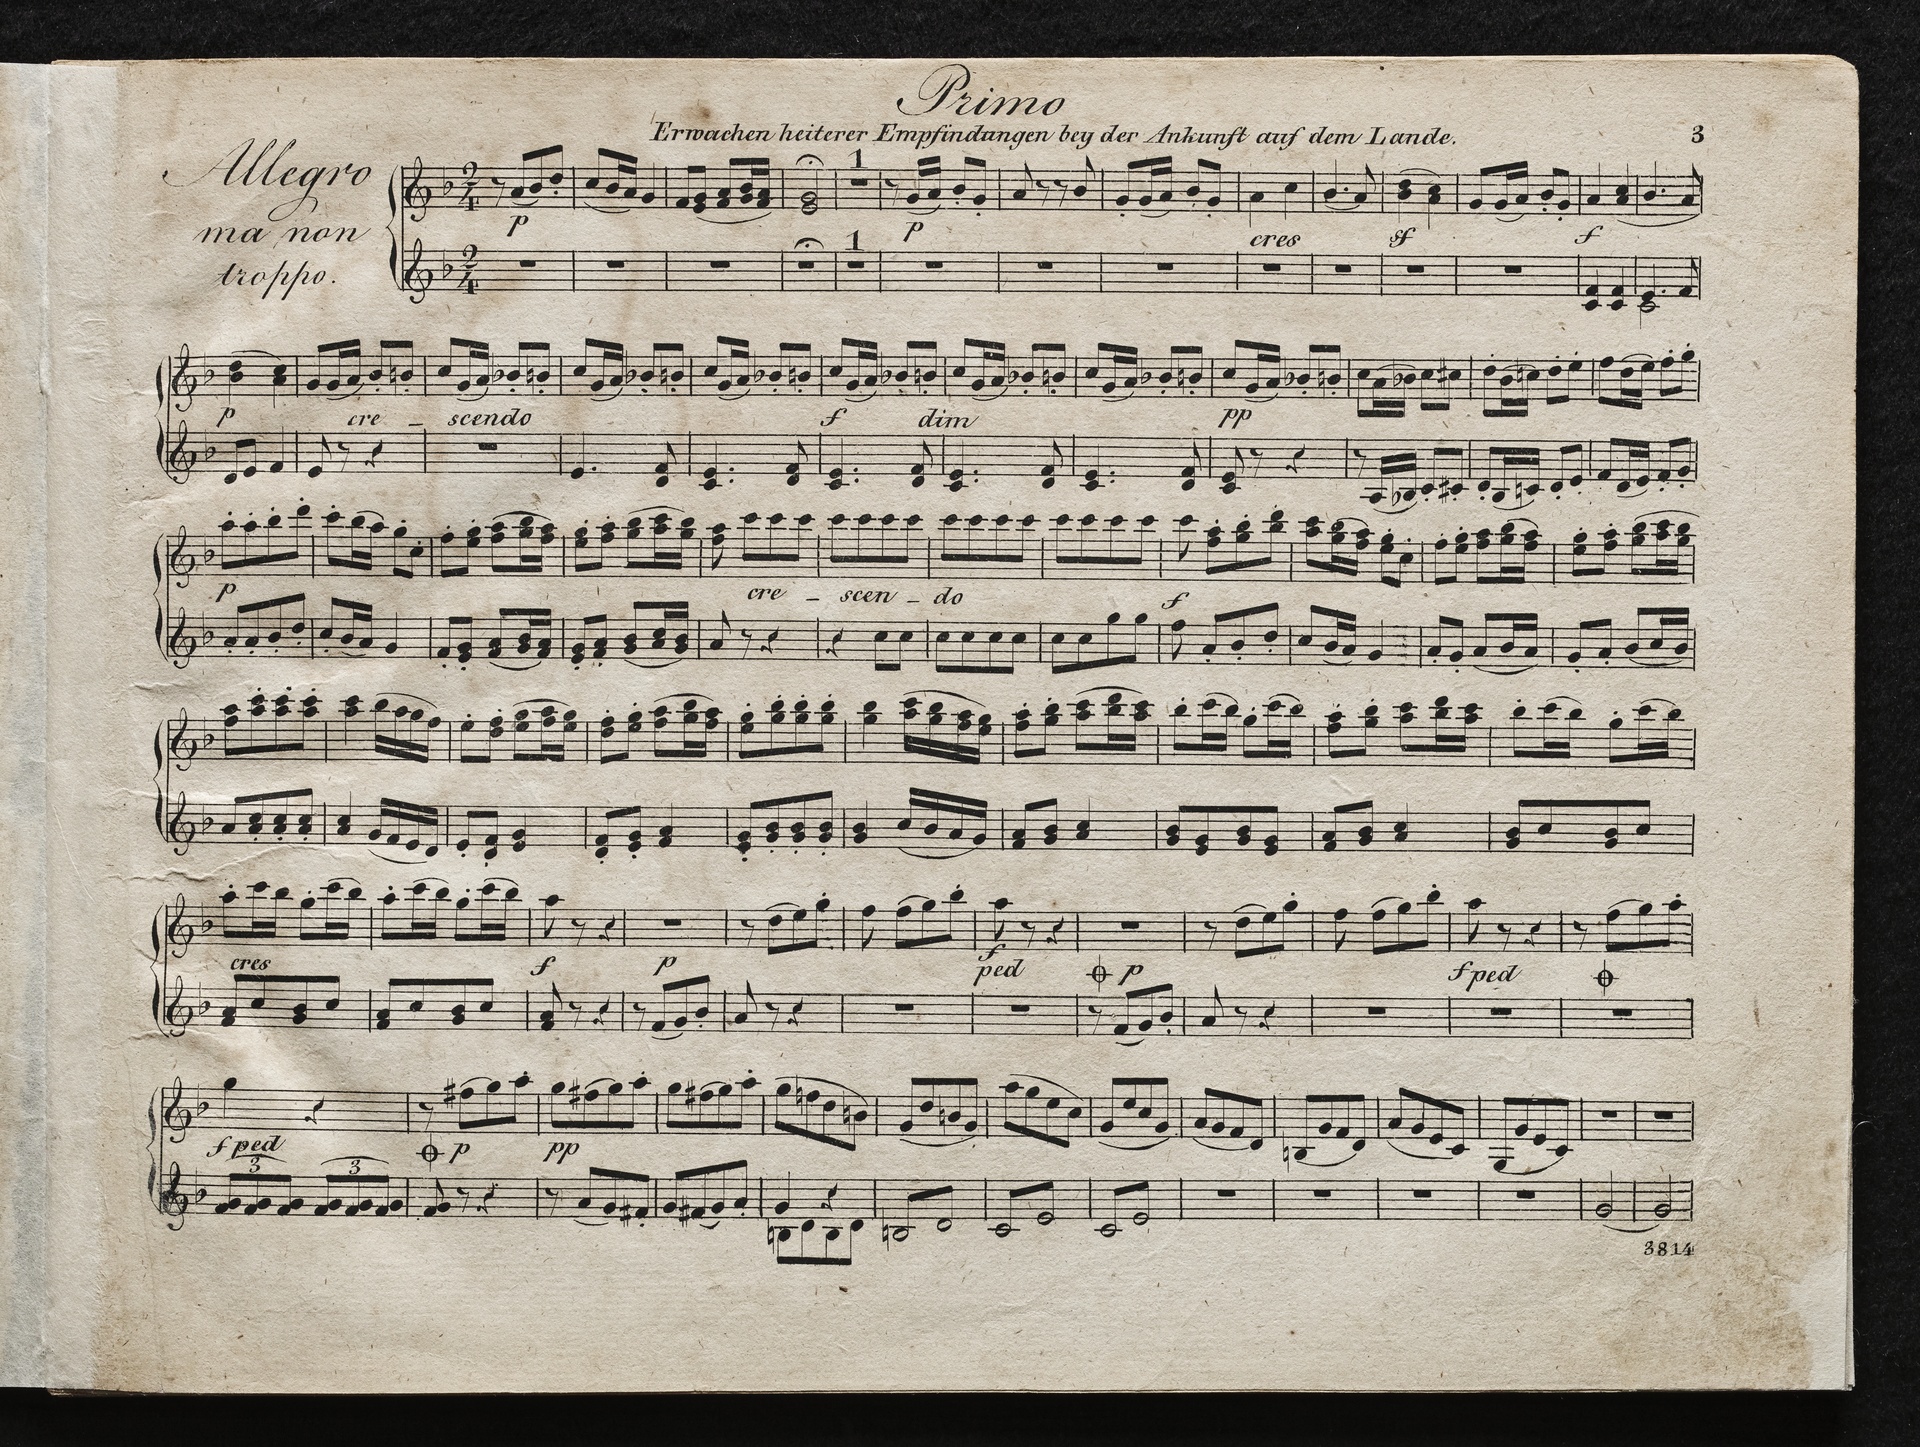 Primo
Erwachen heiterer Empfindungen bey der Ankunft auf dem Lande.
3
Allegro
ma non
troppo.
1
p p cres sf f
1
p cre - scendo f dim pp
p cre - scen - do f
cres f p f ped p f ped
f ped p pp
3 3
3814